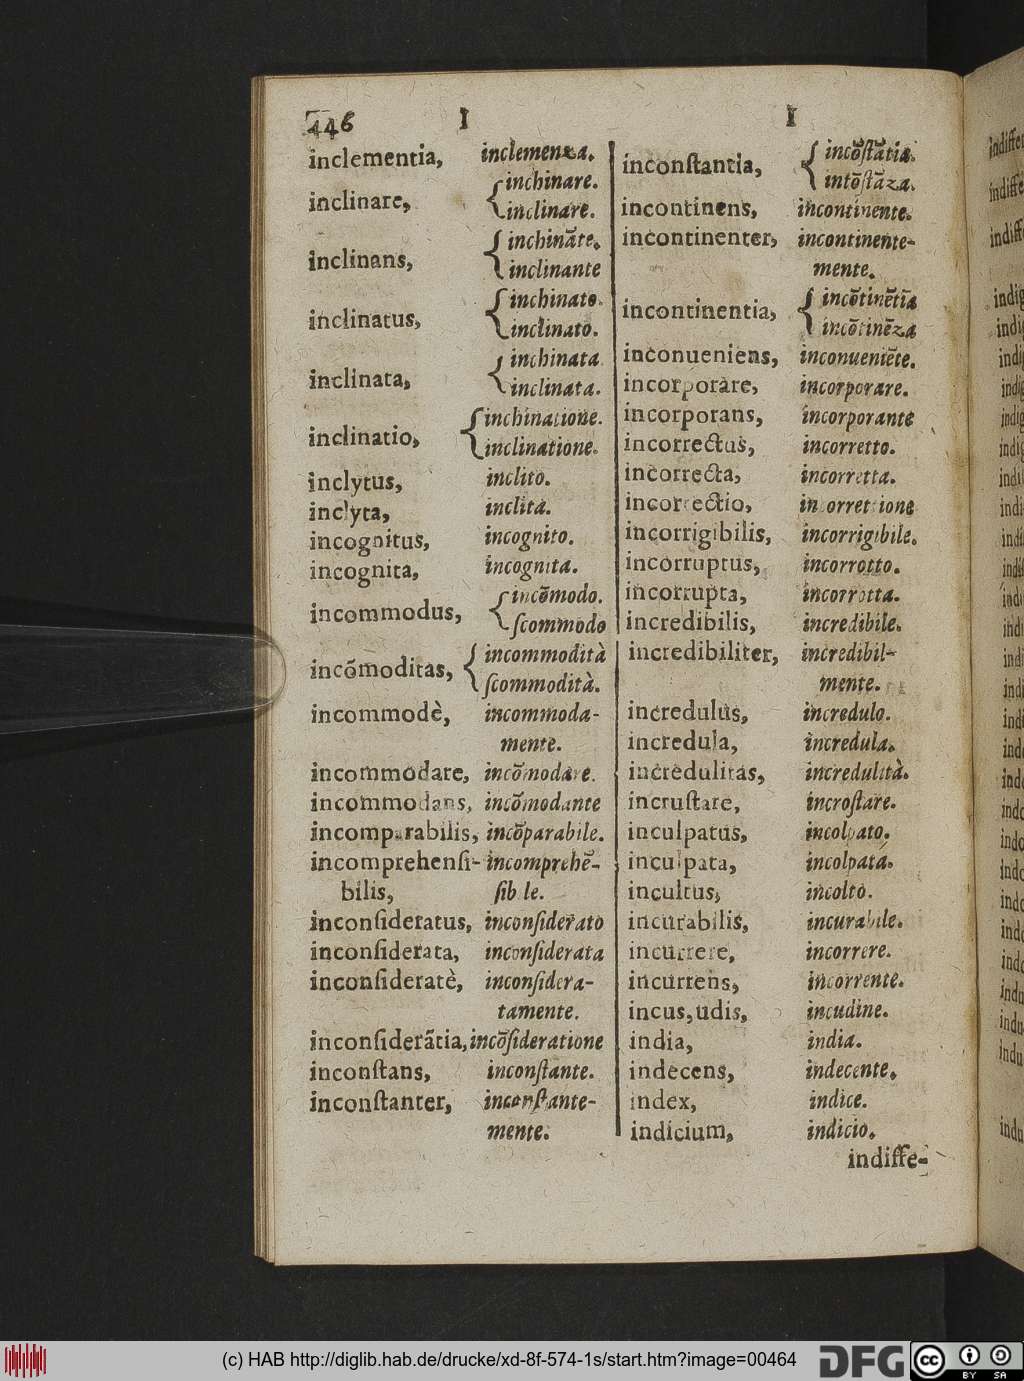 446 I I
inclementia, inclemenza.
inclinare, { inchinare.
inclinare.
inclinans, { inchināte.
inclinante
inclinatus, { inchinato.
inclinato.
inclinata, { inchinata
inclinata.
inclinatio, { inchinatione.
inclinatione.
inclytus, inclito.
inclyta, inclita.
incognitus, incognito.
incognita, incognita.
incommodus, { incōmodo.
ſcommodo
incōmoditas, { incommodità
ſcommodità.
incommodè, incommoda-
mente.
incommodare, incōmodare.
incommodans, incōmodante
incomparabilis, incōparabile.
incomprehenſi- incomprehē-
bilis, ſibile.
inconſideratus, inconſiderato
inconſiderata, inconſiderata
inconſideratè, inconſidera-
tamente.
inconſiderātia, incōſideratione
inconſtans, inconſtante.
inconſtanter, inconſtante-
mente.
inconſtantia, { incōſtātia.
intōſtāza.
incontinens, incontinente.
incontinenter, incontinente-
mente.
incontinentia, { incōtinētia
incōtinēza
inconueniens, inconueniēte.
incorporare, incorporare.
incorporans, incorporante
incorrectus, incorretto.
incorrecta, incorretta.
incorrectio, incorrettione
incorrigibilis, incorrigibile.
incorruptus, incorrotto.
incorrupta, incorrotta.
incredibilis, incredibile.
incredibiliter, incredibil-
mente.
incredulus, incredulo.
incredula, incredula.
incredulitas, incredulità.
incruſtare, incroſtare.
inculpatus, incolpato.
inculpata, incolpata.
incultus, incolto.
incurabilis, incurabile.
incurrere, incorrere.
incurrens, incorrente.
incus, udis, incudine.
india, india.
indecens, indecente.
index, indice.
indicium, indicio.
indiffe-
(c) HAB http://diglib.hab.de/drucke/xd-8f-574-1s/start.htm?image=00464
DFG
cc BY SA